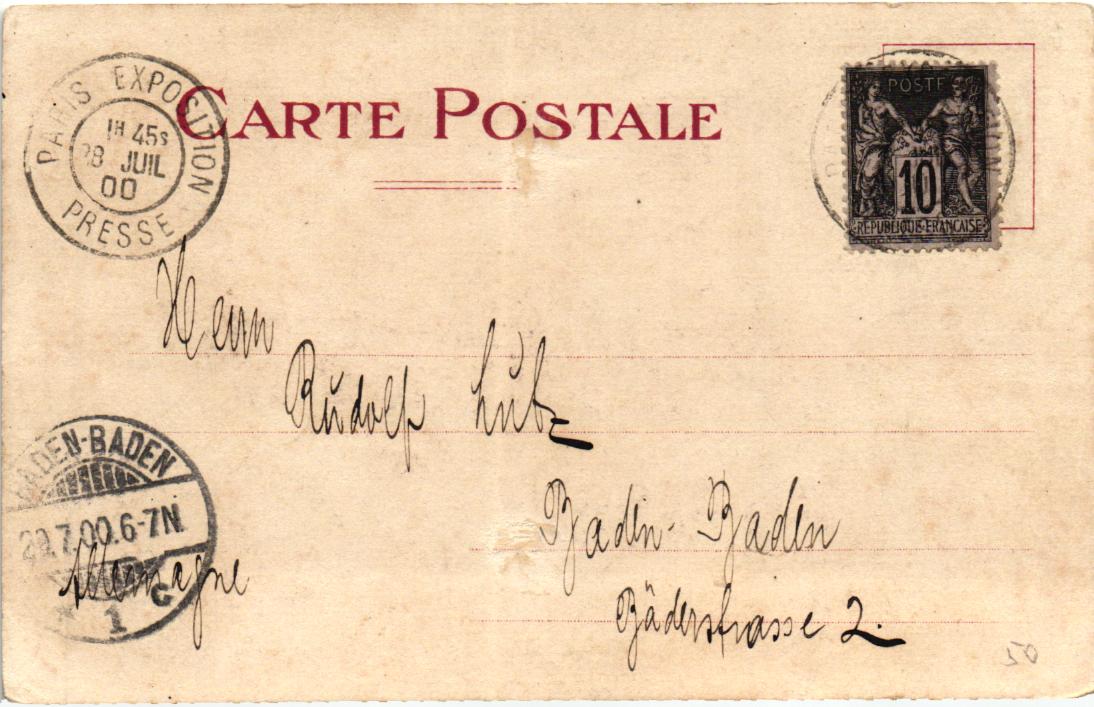 PARIS EXPOSITION
1H 45S
28 JUIL
00
PRESSE
CARTE POSTALE
POSTE
10
REPUBLIQUE FRANCAISE
Herrn
Rudolf Lutz
Baden-Baden
Bäderstrasse 2.
BADEN-BADEN
29.7.00.6-7N.
1 C
Allemagne
50